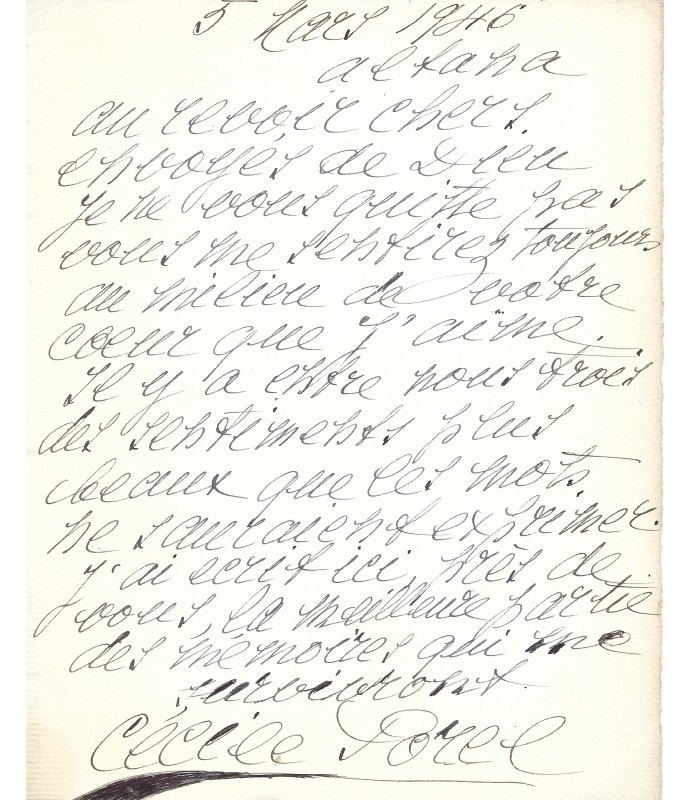 5 Mars 1946
altana
au revoir chers
envoyés de Dieu
je ne vous quitte pas
vous me sentirez toujours
au milieu de votre
coeur que j'aime.
Il y a entre nous trois
des sentiments plus
beaux que les mots
ne sauraient exprimer.
J'ai écrit ici, près de
vous, la meilleure partie
des mémoires qui me
survivront.
Cécile Sorel